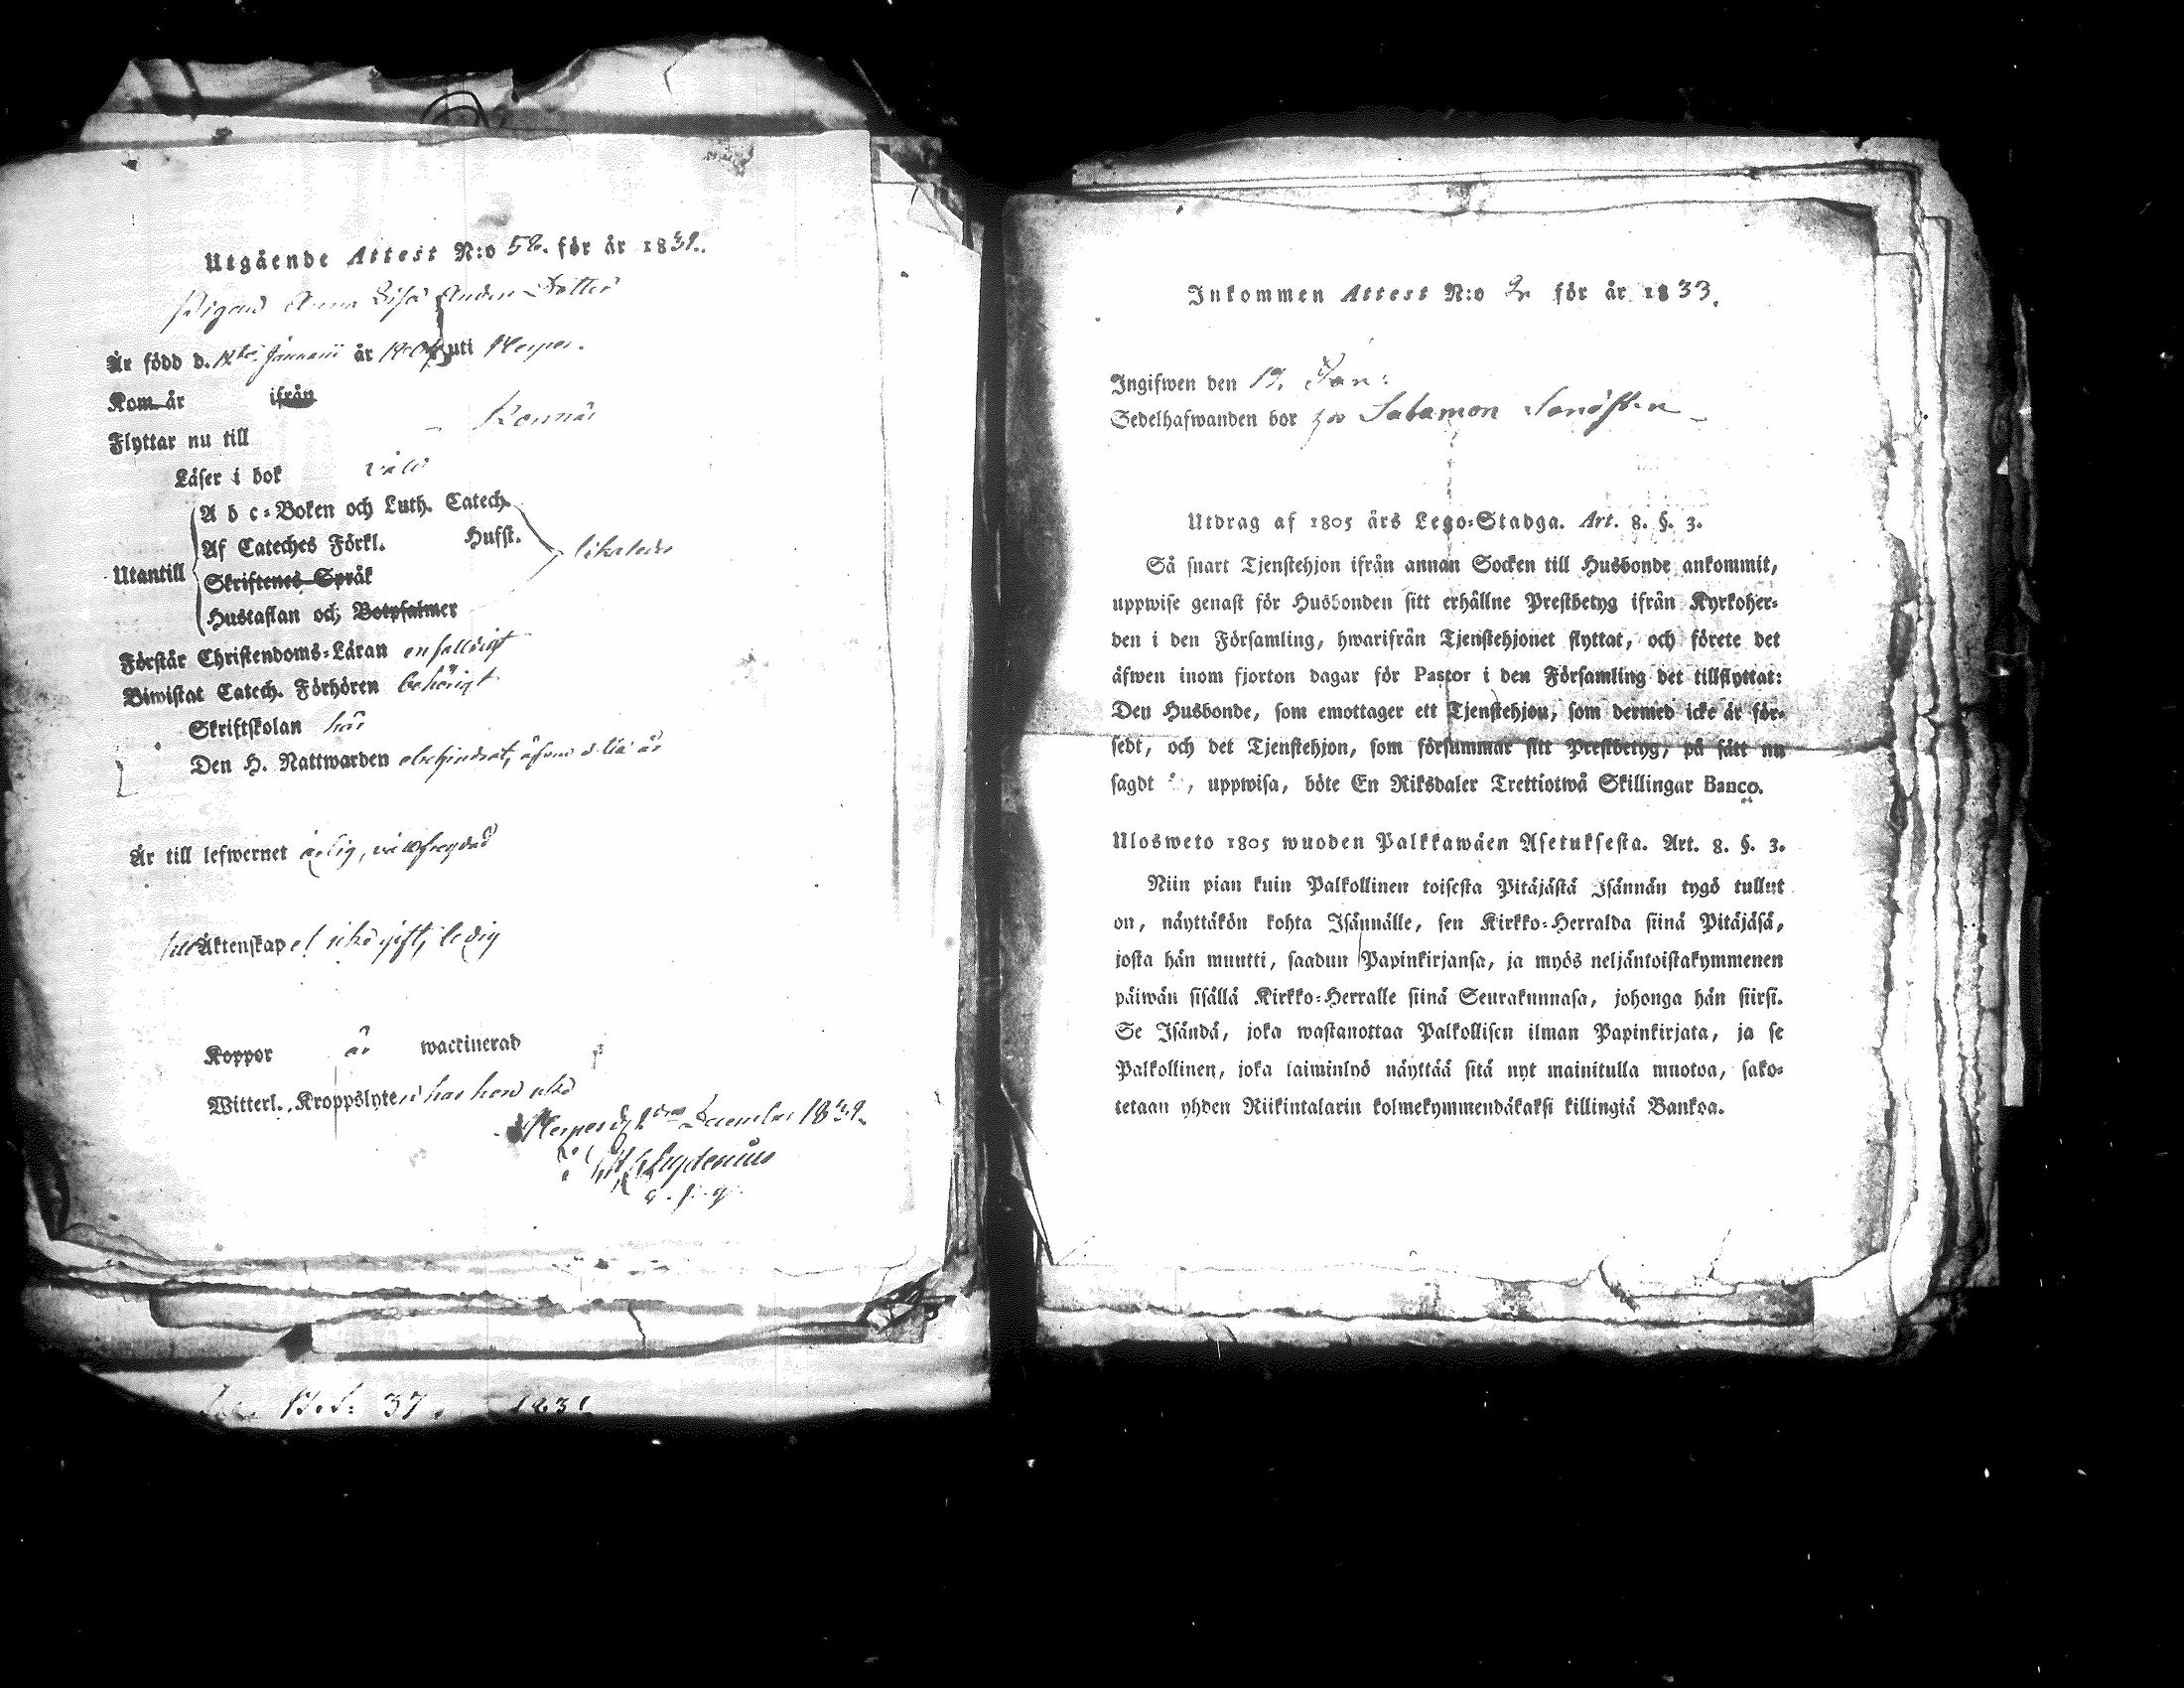 Utgående Attest N:o 52. för år 1832.
Pigan Anna Lisa Anders Dotter
Är född d. Januarii år uti Nerpes.
Kom år ifrån
Flyttar nu till
Läser i bok väl
A b c-Boken och Luth. Catech.
Af Cateches Förkl. Hufst.
Utantill
likaledes
Skriftenes Språk
Hustaflan och Botpsalmer
Förstår Christendoms-Läran enfalldigt
Biwistat Catech. Förhören behörigt
Skriftskolan här
Den H. Nattwarden obehindrat,
Är till lefwernet ärlig, välfrejdad
Äktenskap ej gift, ledig
Koppor är waccinerad
Witterl. Kroppslyte har hon icke
Nerpes d. December 1832.
Inkommen Attest N:o 2 för år 1833.
Ingifwen den Jan:
Sedelhafwanden bor på Salamon
Utdrag af 1805 års Lego-Stadga. Art. 8. §. 3.
Så snart Tjenstehjon ifrån annan Socken till Husbonde ankommit,
uppwise genast för Husbonden sitt erhållne Prestbetyg ifrån Kyrkoher-
den i den Församling, hwarifrån Tjenstehjonet flyttat, och förete det
äfwen inom fjorton dagar för Pastor i den Församling det tillflyttat:
Den Husbonde, som emottager ett Tjenstehjon, som dermed icke är för-
sedt, och det Tjenstehjon, som försummar sitt Prestbetyg, på sätt nu
sagdt, uppwisa, böte En Riksdaler Trettiotwå Skillingar Banco.
Ulosweto 1805 wuoden Palkkawäen Asetuksesta. Art. 8. §. 3.
Niin pian kuin Palkollinen toisesta Pitäjästä Isännän tygö tullut
on, näyttäkön kohta Isännälle, sen Kirkko-Herralda siinä Pitäjäsä,
josta hän muutti, saadun Papinkirjansa, ja myös neljäntoistakymmenen
päiwän sisällä Kirkko-Herralle siinä Seurakunnasa, johonga hän siirsi.
Se Isändä, joka wastanottaa Palkollisen ilman Papinkirjata, ja se
Palkollinen, joka laiminlyö näyttää sitä nyt mainitulla muotoa, sako-
tetaan yhden Riikintalarin kolmekymmendäkaksi killingiä Bankoa.